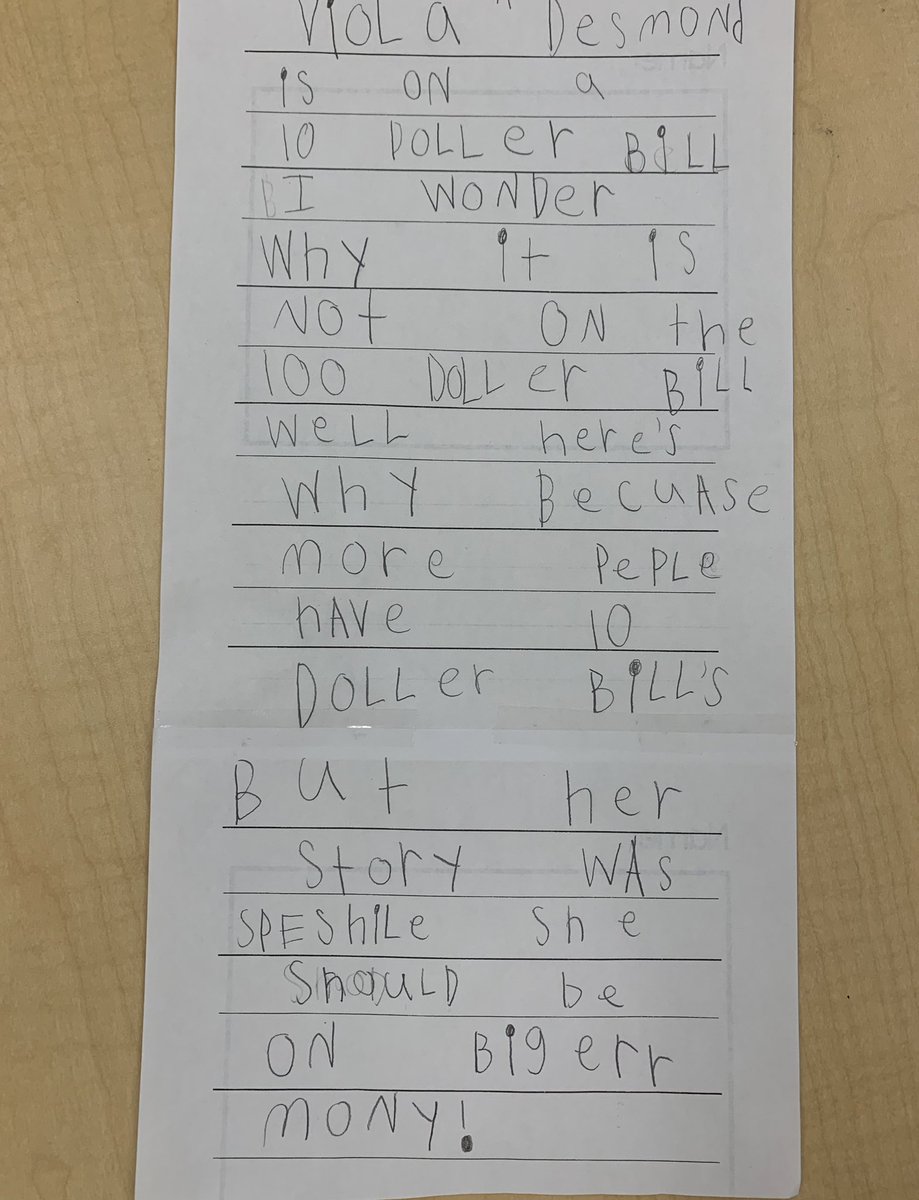 VioLa Desmond
is ON a
10 DOLLer BiLL
I WONDer
Why it is
Not ON the
100 DOLLer BiLL
WeLL here's
Why BecuAse
more PePLe
hAVe 10
DOLLer BiLL's
But her
Story WAS
SPEShiLe She
ShOULD be
ON Bigerr
mONY!